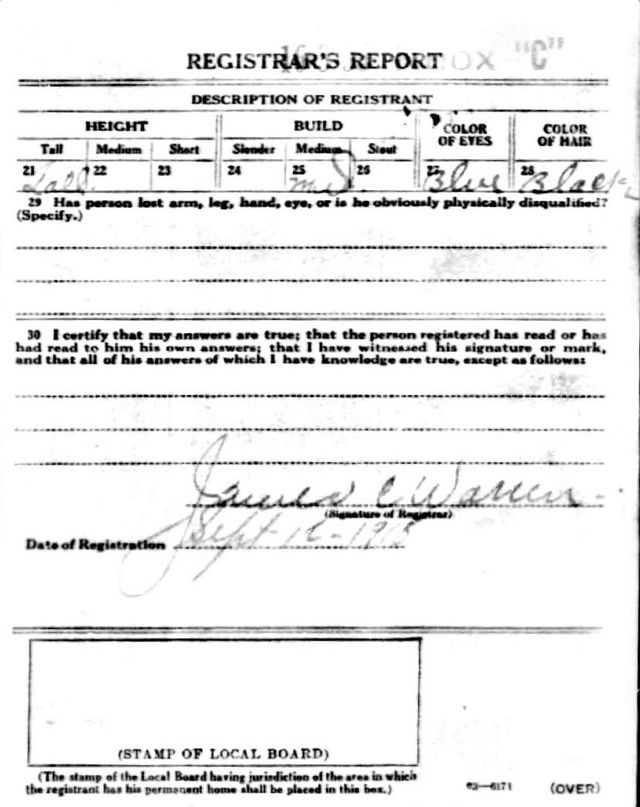 REGISTRAR'S REPORT "C"
DESCRIPTION OF REGISTRANT
HEIGHT BUILD COLOR OF EYES COLOR OF HAIR
Tall Medium Short Slender Medium Stout
21 22 23 24 25 26 27 28
Tall Med. Blue Black
29 Has person lost arm, leg, hand, eye, or is he obviously physically disqualified?
(Specify.)
30 I certify that my answers are true; that the person registered has read or has
had read to him his own answers; that I have witnessed his signature or mark,
and that all of his answers of which I have knowledge are true, except as follows:
James C Warren
(Signature of Registrar)
Date of Registration Sept 12-1918
(STAMP OF LOCAL BOARD)
(The stamp of the Local Board having jurisdiction of the area in which
the registrant has his permanent home shall be placed in this box.)
03—6171 (OVER)